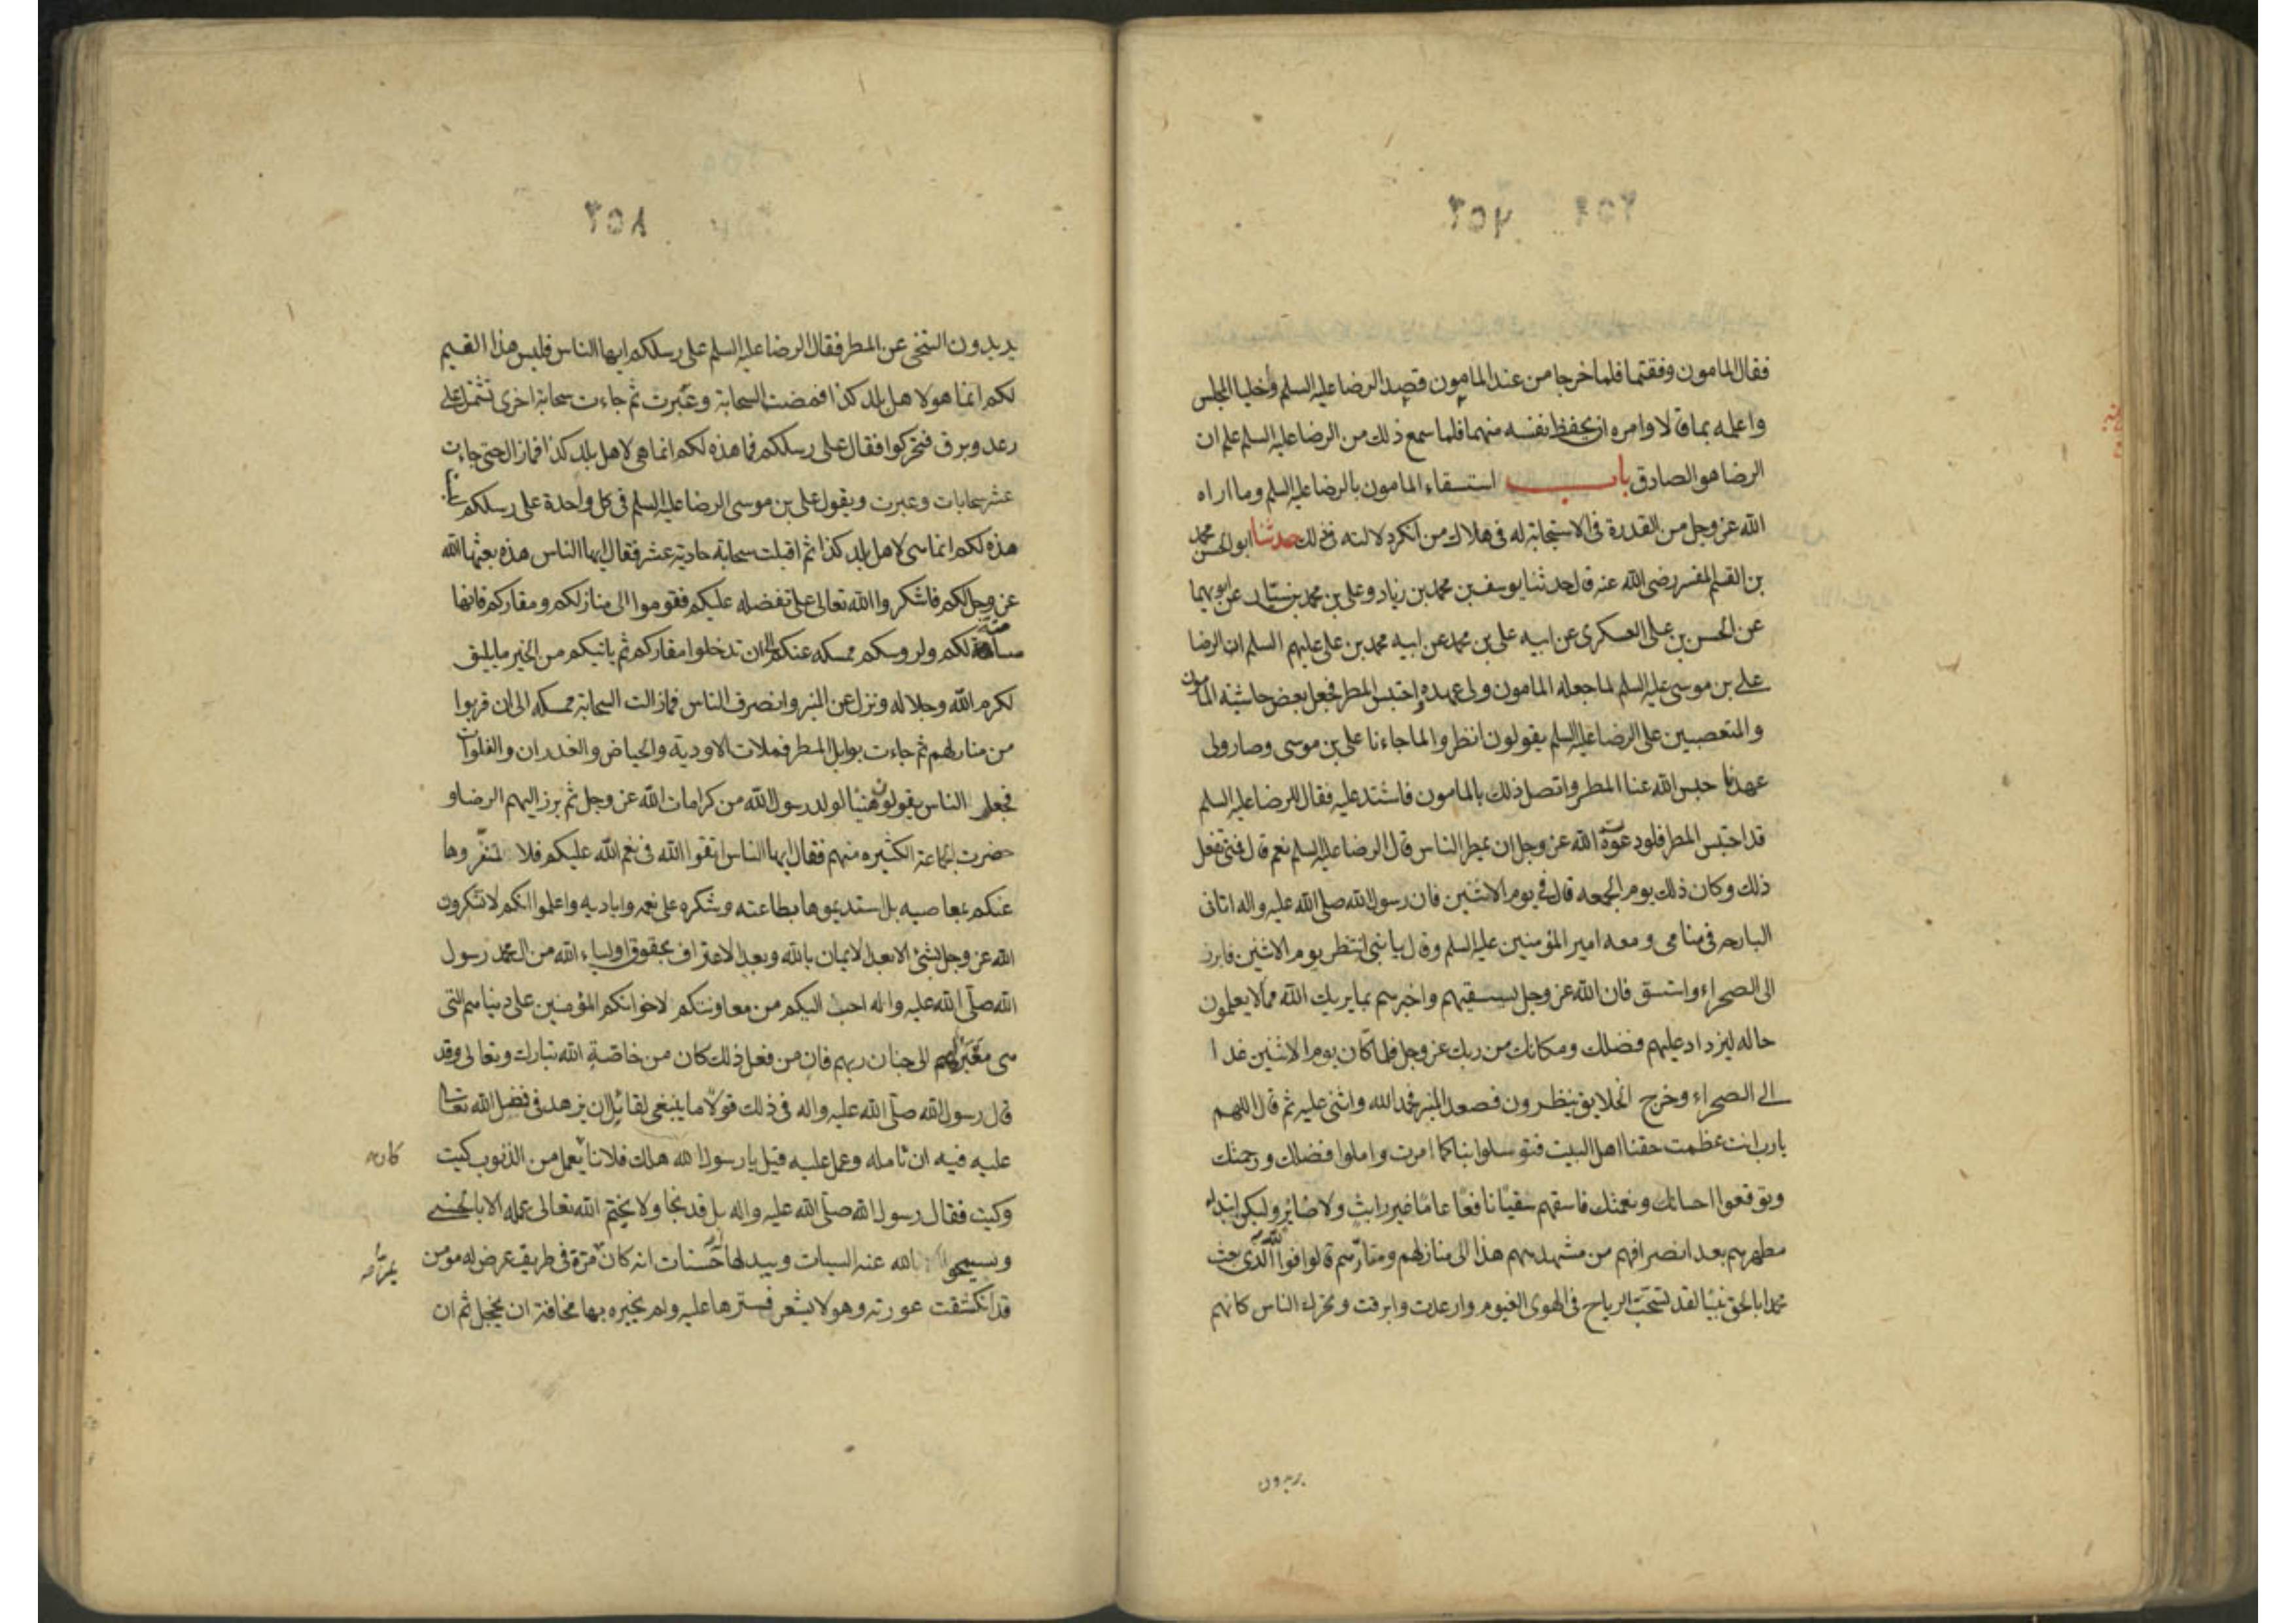 ٢٥٦ ٢٥٧
فقال المامون وفقتما فلما خرجا من عند المامون قصد الرضا عليه السلم وأخليا المجلس
واعلمه بما قالا وامره ان يحفظ نفسه منهما فلما سمع ذلك من الرضا عليه السلم علم ان
الرضا هو الصادق باب استسقاء المامون بالرضا عليه السلم وما اراه
الله عز وجل من القدرة في الاستجابة له في هلاك من انكر دلالته في ذلك حدثنا ابو الحسن محمد
بن القسم المفسر رضي الله عنه قال حدثنا يوسف بن محمد بن زياد وعلى بن محمد بن سيّار عن ابويهما
عن الحسن بن على العسكرى عن ابيه على بن محمد عن ابيه محمد بن على عليهم السلم ان الرضا
على بن موسى عليه السلم لما جعله المامون ولى عهده احتبس المطر فجعل بعض حاشية المامون
والمتعصبين على الرضا عليه السلم يقولون انظروا لما جاءنا على بن موسى وصار ولى
عهدنا حبس الله عنا المطر واتصل ذلك بالمامون فاشتد عليه فقال للرضا عليه السلم
قد احتبس المطر فلو دعوت الله عز وجل ان يمطر الناس قال الرضا عليه السلم نعم قال فمتى تفعل
ذلك وكان ذلك يوم الجمعه قال في يوم الاثنين فان رسول الله صلى الله عليه واله اتانى
البارحه في منامى ومعه امير المؤمنين عليه السلم وقال يا بنى انتظر يوم الاثنين فابرز
الى الصحراء واستسق فان الله عز وجل ليسقيهم واخبرهم بما يريك الله مما لا يعلمون
حاله ليزداد عليهم فضلك ومكانك من ربك عز وجل فلما كان يوم الاثنين غدا
الى الصحراء وخرج الخلايق ينظرون فصعد المنبر فحمد الله واثنى عليه ثم قال اللهم
يا رب انت عظمت حقنا اهل البيت فتوسلوا بنا كما امرت واملوا فضلك ورحمتك
وتوقعوا احسانك ونعمتك فاسقهم سقيًا نافعًا عامًا غير رايث ولا ضاير وليكن ابتداء
مطرهم بعد انصرافهم من مشهدهم هذا الى منازلهم ومقارّهم قالوا فوالله الذى بعث
محمدا بالحق نبيّا لقد نسجت الرياح في الهوى الغيوم وارعدت وابرقت وتحرك الناس كانهم
يريدون
٢٥٨
يريدون التنحى عن المطر فقال الرضا عليه السلم على رسلكم ايها الناس فليس هذا الغيم
لكم انما هو لاهل بلد كذا فمضت السحابة وعبرت ثم جاءت سحابة اخرى تشتمل على
رعد وبرق فتحركوا فقال على رسلكم فما هذه لكم انما هى لاهل بلد كذا فما زال حتى جاءت
عشر سحابات وعبرت ويقول على بن موسى الرضا عليه السلم في كل واحدة على رسلكم
هذه لكم انما هى لاهل بلد كذا ثم اقبلت سحابة حادية عشر فقال ايها الناس هذه بعثها الله
عز وجل لكم فاشكروا الله تعالى على تفضله عليكم فقوموا الى منازلكم ومقاركم فانها
مسامتة لكم ولروسكم ممسكه عنكم الى ان تدخلوا مقاركم ثم ياتيكم من الخير ما يليق
لكرم الله وجلاله ونزل عن المنبر وانصرف الناس فما زالت السحابة ممسكه الى ان قربوا
من منازلهم ثم جاءت بوابل المطر فملات الاودية والحياض والغدران والفلوات
فجعل الناس يقولون هنيئا لولد رسول الله من كرامات الله عز وجل ثم برز اليهم الرضا و
حضرت الجماعة الكثيره منهم فقال ايها الناس اتقوا الله في نعم الله عليكم فلا تنفّروها
عنكم بمعاصيه بل استديموها بطاعته وشكره على نعمه واياديه واعلموا انكم لا تشكرون
الله عز وجل بشئ الا بعد الايمان بالله وبعد الاعتراف بحقوق اولياء الله من ال محمد رسول
الله صلّى الله عليه واله احب اليكم من معاونتكم لاخوانكم المؤمنين على دنياهم التى
هى معبر لهم الى جنان ربهم فان من فعل ذلك كان من خاصّة الله تبارك وتعالى وقد
قال رسول الله صلّى الله عليه واله في ذلك قولًا ما ينبغى لقائل ان يزهد في فضل الله تعالى
عليه فيه ان تامله وعمل عليه قيل يا رسول الله هلك فلانا يعمل من الذنوب كيت
وكيت فقال رسول الله صلّى الله عليه واله بل قد نجا ولا يختم الله تعالى عمله الا بالحسنى
وسيمحو الله عنه السيات ويبدلها حسنات انه كان مرّة في طريق عرض له مؤمن
قد انكشفت عورته وهو لا يشعر فسترها عليه ولم يخبره بها مخافة ان يخجل ثم ان